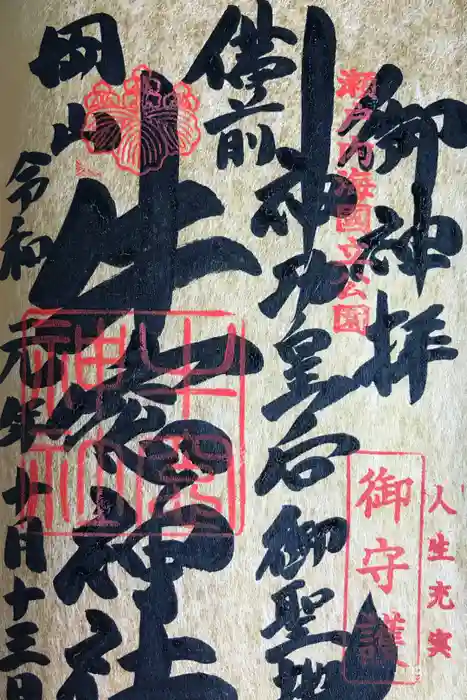 御神拝
瀬戸内海国立公園
御守護
人生充実
備前
神功皇后御聖跡
岡山
牛窓神社
牛窓神社
令和元年十月十三日